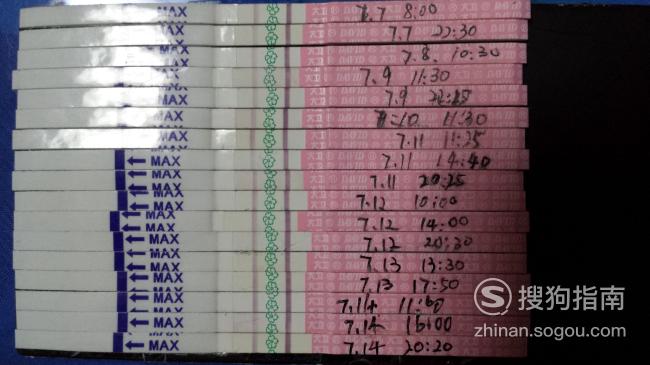 MAX 7.7 8:00
MAX 7.7 22:30
MAX 7.8. 10:30
MAX 7.9 11:30
MAX 7.9
MAX 11:30
MAX 7.11 11:25
MAX 7.11 14:40
MAX 7.11 20:25
MAX 7.12 10:00
MAX 7.12 14:00
MAX 7.12 20:30
MAX 7.13 13:30
MAX 7.13 17:50
MAX 7.14
MAX 7.14 15:00
MAX 7.14 20:20
搜狗指南
zhinan.sogou.com